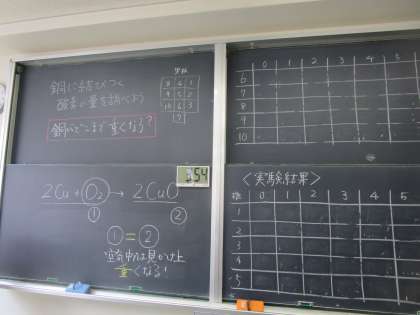 銅に結びつく
酸素の量を調べよう
銅はどこまで重くなる?
黒板
8 4 1
9 5 2
10 6 3
7
54
2Cu + O₂ → 2CuO
① ②
① = ②
空気中は見かけ上
重くなる!
0 1 2 3 4
6
7
8
9
10
<実験結果>
班 0 1 2 3 4 5
1
2
3
4
5